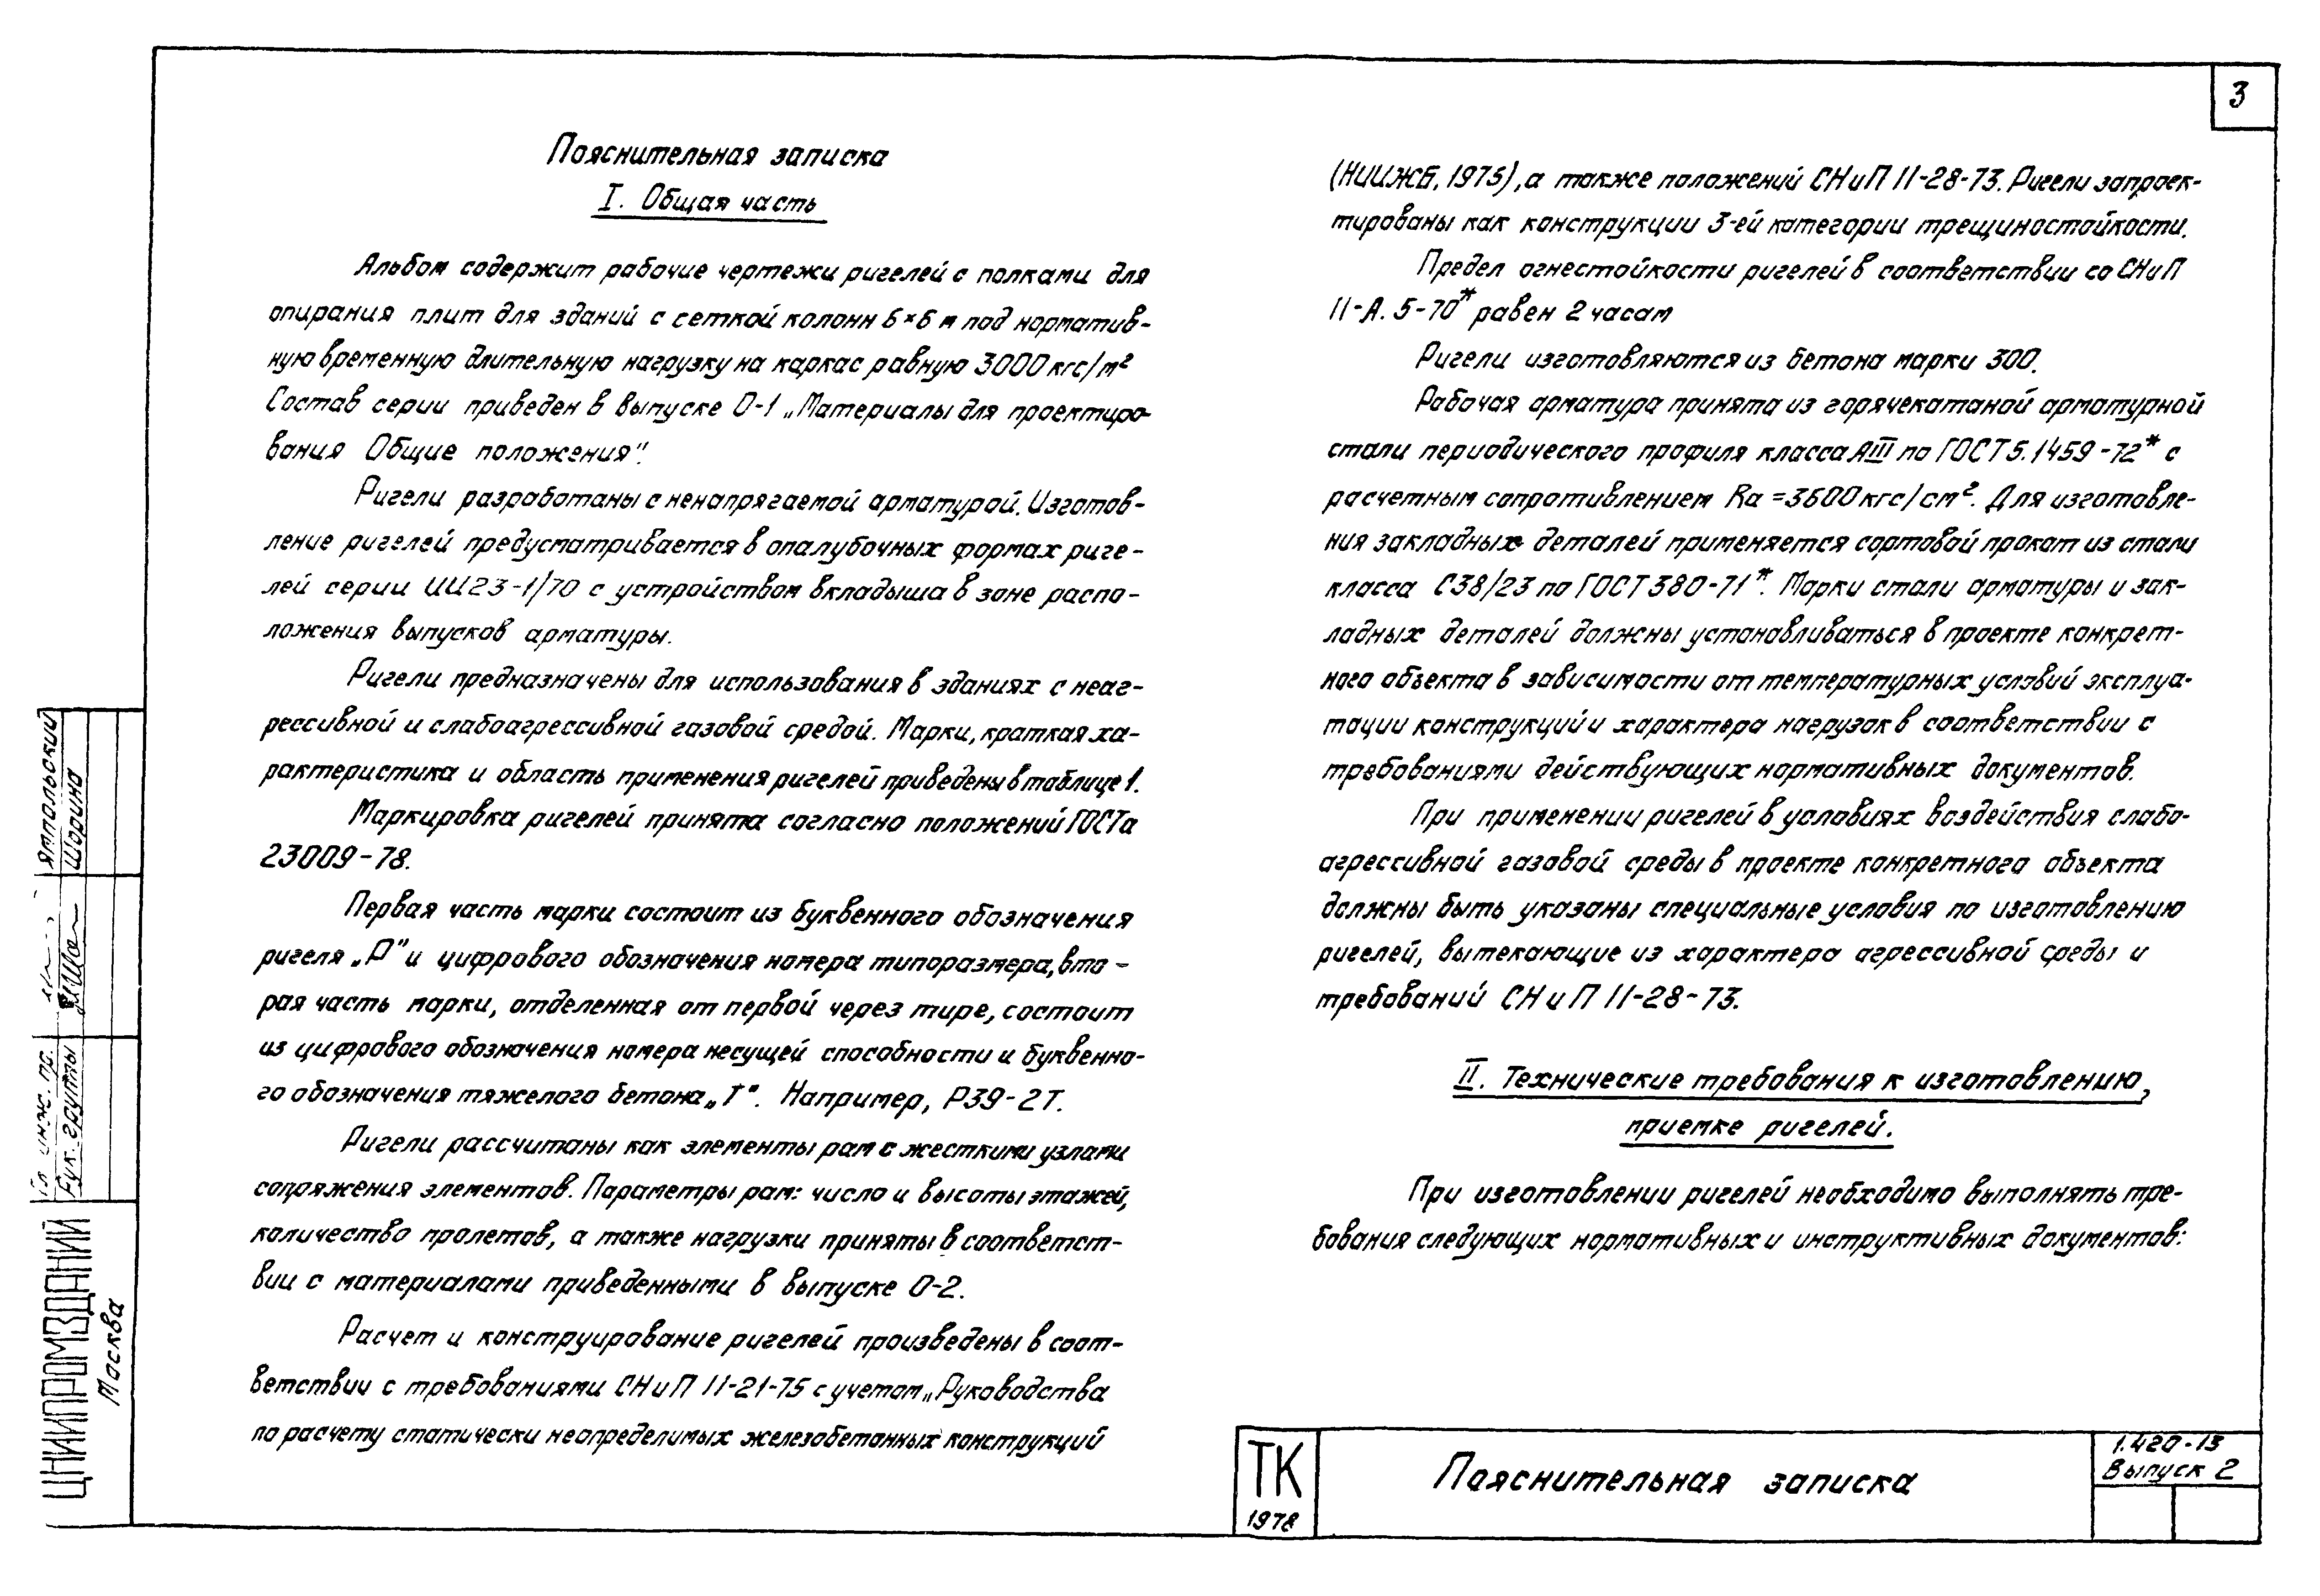 3
Пояснительная записка
I. Общая часть
Альбом содержит рабочие чертежи ригелей с полками для
опирания плит для зданий с сеткой колонн 6×6 м под норматив-
ную временную длительную нагрузку на каркас равную 3000 кгс/м²
Состав серии приведен в выпуске 0-1 „Материалы для проектиро-
вания Общие положения".
Ригели разработаны с ненапрягаемой арматурой. Изготов-
ление ригелей предусматривается в опалубочных формах риге-
лей серии ИИ23-1/70 с устройством вкладыша в зоне распо-
ложения выпусков арматуры.
Ригели предназначены для использования в зданиях с неаг-
рессивной и слабоагрессивной газовой средой. Марки, краткая ха-
рактеристика и область применения ригелей приведены в таблице 1.
Маркировка ригелей принята согласно положений ГОСТа
23009-78.
Первая часть марки состоит из буквенного обозначения
ригеля „Р" и цифрового обозначения номера типоразмера, вто-
рая часть марки, отделенная от первой через тире, состоит
из цифрового обозначения номера несущей способности и буквенно-
го обозначения тяжелого бетона „Т". Например, Р39-2Т.
Ригели рассчитаны как элементы рам с жесткими узлами
сопряжения элементов. Параметры рам: число и высоты этажей,
количество пролетов, а также нагрузки приняты в соответст-
вии с материалами приведенными в выпуске 0-2.
Расчет и конструирование ригелей произведены в соот-
ветствии с требованиями СНиП II-21-75 с учетом „Руководства
по расчету статически неопределимых железобетонных конструкций
(НИИЖБ, 1975), а также положений СНиП II-28-73. Ригели запроек-
тированы как конструкции 3-ей категории трещиностойкости.
Предел огнестойкости ригелей в соответствии со СНиП
II-А. 5-70* равен 2 часам
Ригели изготовляются из бетона марки 300.
Рабочая арматура принята из горячекатаной арматурной
стали периодического профиля класса АIII по ГОСТ 5.1459-72* с
расчетным сопротивлением Rа = 3600 кгс/см². Для изготовле-
ния закладных деталей применяется сортовой прокат из стали
класса С38/23 по ГОСТ 380-71*. Марки стали арматуры и зак-
ладных деталей должны устанавливаться в проекте конкрет-
ного объекта в зависимости от температурных условий эксплуа-
тации конструкций и характера нагрузок в соответствии с
требованиями действующих нормативных документов.
При применении ригелей в условиях воздействия слабо-
агрессивной газовой среды в проекте конкретного объекта
должны быть указаны специальные условия по изготовлению
ригелей, вытекающие из характера агрессивной среды и
требований СНиП II-28-73.
II. Технические требования к изготовлению,
приемке ригелей.
При изготовлении ригелей необходимо выполнять тре-
бования следующих нормативных и инструктивных документов:
ТК
1978
Пояснительная записка
1.420-13
Выпуск 2
Гл. инж. пр.
Ямпольский
Рук. группы
Шорина
ЦНИИПРОМЗДАНИЙ
Москва